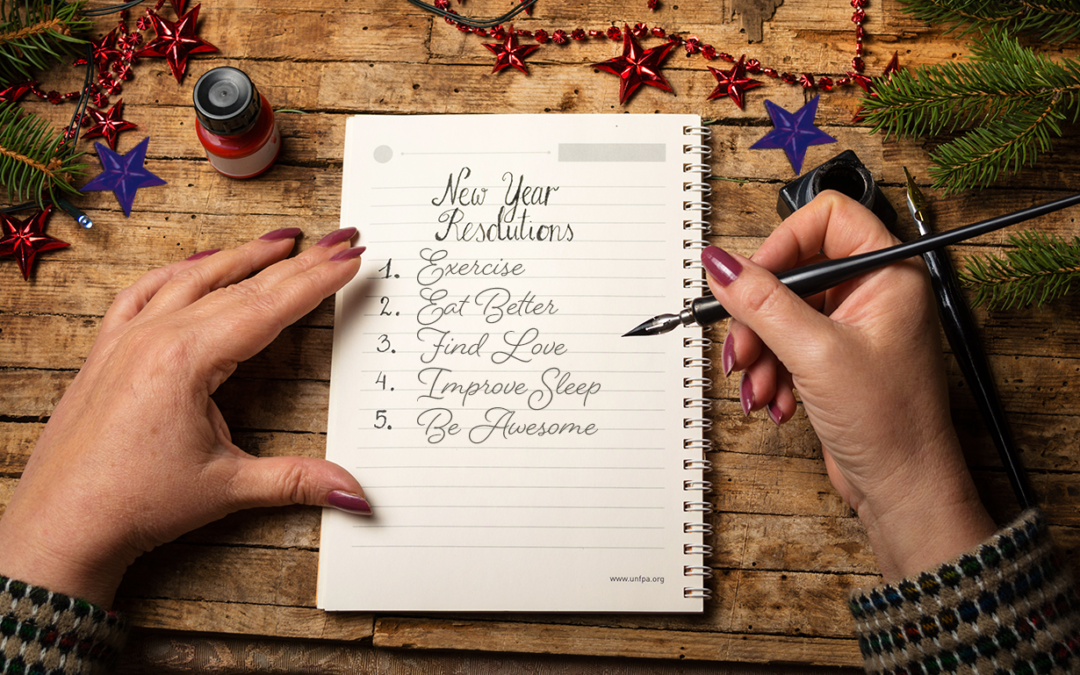 New Year
Resolutions
1. Exercise
2. Eat Better
3. Find Love
4. Improve Sleep
5. Be Awesome
www.unfpa.org